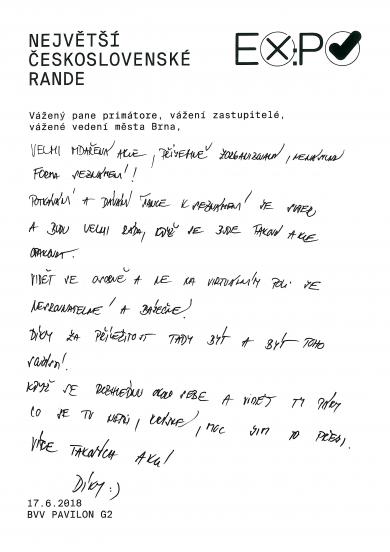 NEJVĚTŠÍ
ČESKOSLOVENSKÉ
RANDE
EXPO
Vážený pane primátore, vážení zastupitelé,
vážené vedení města Brna,
VELMI ZDAŘENÁ AKCE, PŘÍJEMNĚ ZORGANIZOVANÁ, NENÁSILNÁ
FORMA SEZNÁMENÍ!
POTKÁVÁNÍ A DÁVÁNÍ ŠANCE K SEZNÁMENÍ JE SUPER
A BUDU VELMI RÁDA, KDYŽ SE BUDE TAKOVÁ AKCE
OPAKOVAT.
VIDĚT SE OSOBNĚ A NE NA VIRTUÁLNÍM POLI JE
NESROVNATELNÉ! A BÁJEČNÉ!
DÍKY ZA PŘÍLEŽITOST TADY BÝT A BÝT TOHO
SOUČÁSTÍ!
KDYŽ SE ROZHLÉDNU OKOLO SEBE A VIDĚT TY PÁRY
CO SE TU NAŠLI, MOC JIM TO PŘEJI,
VÍCE TAKOVÝCH AKCÍ!
DÍKY :)
17.6.2018
BVV PAVILON G2